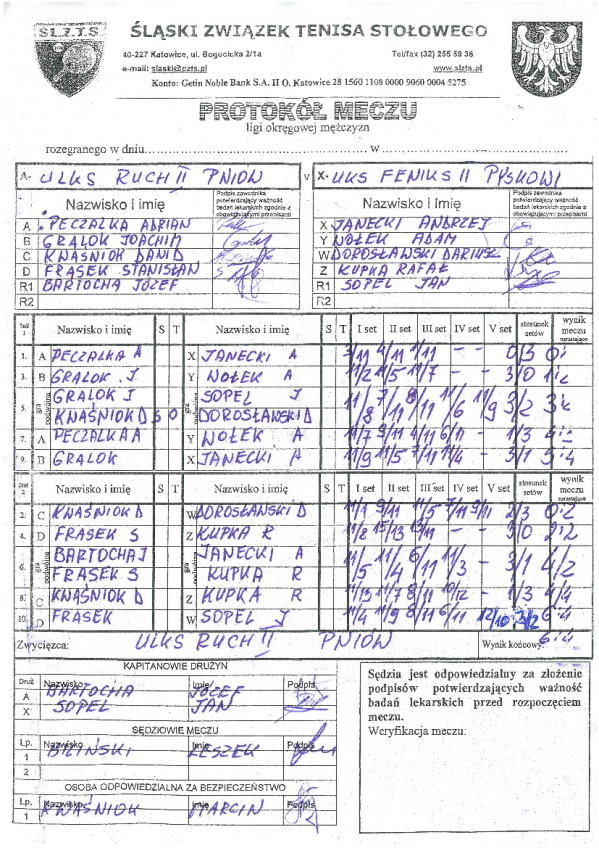 ŚL.Z.T.S
ŚLĄSKI ZWIĄZEK TENISA STOŁOWEGO
40-227 Katowice, ul. Bogucicka 2/1a Tel/fax (32) 255 59 36
e-mail: slaski@pzts.pl www.slzts.pl
Konto: Getin Noble Bank S.A. II O. Katowice 28 1560 1108 0000 9060 0004 5275
PROTOKÓŁ MECZU
ligi okręgowej mężczyzn
rozegranego w dniu w
A- ULKS RUCH II PNIÓW v X- UKS FENIKS II PYSKOWI
Nazwisko i imię Podpis zawodnika potwierdzający ważność badań lekarskich zgodnie z obowiązującymi przepisami Nazwisko i imię Podpis zawodnika potwierdzający ważność badań lekarskich zgodnie z obowiązującymi przepisami
A PECZAŁKA ADRIAN X JANECKI ANDRZEJ
B GRALOK JOACHIM Y WOŁEK ADAM
C KWAŚNIOK DAWID W DOROSŁAWSKI DARIUSZ
D FRASEK STANISŁAW Z KUPKA RAFAŁ
R1 BARTOCHA JÓZEF R1 SOPEL JAN
R2 R2
Stół 1 Nazwisko i imię S T Nazwisko i imię S T I set II set III set IV set V set stosunek setów wynik meczu narastająco
1. A PECZAŁKA A X JANECKI A 3/11 4/11 1/11 - - 0/3
3. B GRALOK J Y WOŁEK A 11/2 11/5 11/7 - - 3/0
GRALOK J SOPEL J
5. gra podwójna KWAŚNIOK D DOROSŁAWSKI D 11/8 7/11 8/11 11/6 11/9 3/2
7. A PECZAŁKA A Y WOŁEK A 11/7 9/11 4/11 6/11 - 1/3
9. B GRALOK X JANECKI A 11/9 11/5 7/11 11/4 - 3/1 5:4
Stół 2 Nazwisko i imię S T Nazwisko i imię S T I set II set III set IV set V set stosunek setów wynik meczu narastająco
2. C KWAŚNIOK D W DOROSŁAWSKI D 9/11 11/5 7/11 9/11 2/3 0:2
4. D FRASEK S Z KUPKA R 11/2 15/13 13/11 - - 3/0 2:2
BARTOCHA J JANECKI A
6. gra podwójna FRASEK S KUPKA R 11/5 11/4 6/11 11/3 - 3/1 4/2
8. C KWAŚNIOK D Z KUPKA R 11/13 11/7 8/11 10/12 - 1/3 4/4
10. D FRASEK W SOPEL J 11/4 11/9 8/11 6/11 12/10 3/2 6:4
Zwycięzca: ULKS RUCH II PNIÓW Wynik końcowy: 6:4
KAPITANOWIE DRUŻYN
Druż Nazwisko Imię Podpis
A BARTOCHA JÓZEF
X SOPEL JAN
SĘDZIOWIE MECZU
Lp. Nazwisko Imię Podpis
1 BILIŃSKI LESZEK
2
OSOBA ODPOWIEDZIALNA ZA BEZPIECZEŃSTWO
Lp. Nazwisko Imię Podpis
1 KWAŚNIOK MARCIN
Sędzia jest odpowiedzialny za złożenie
podpisów potwierdzających ważność
badań lekarskich przed rozpoczęciem
meczu.
Weryfikacja meczu: